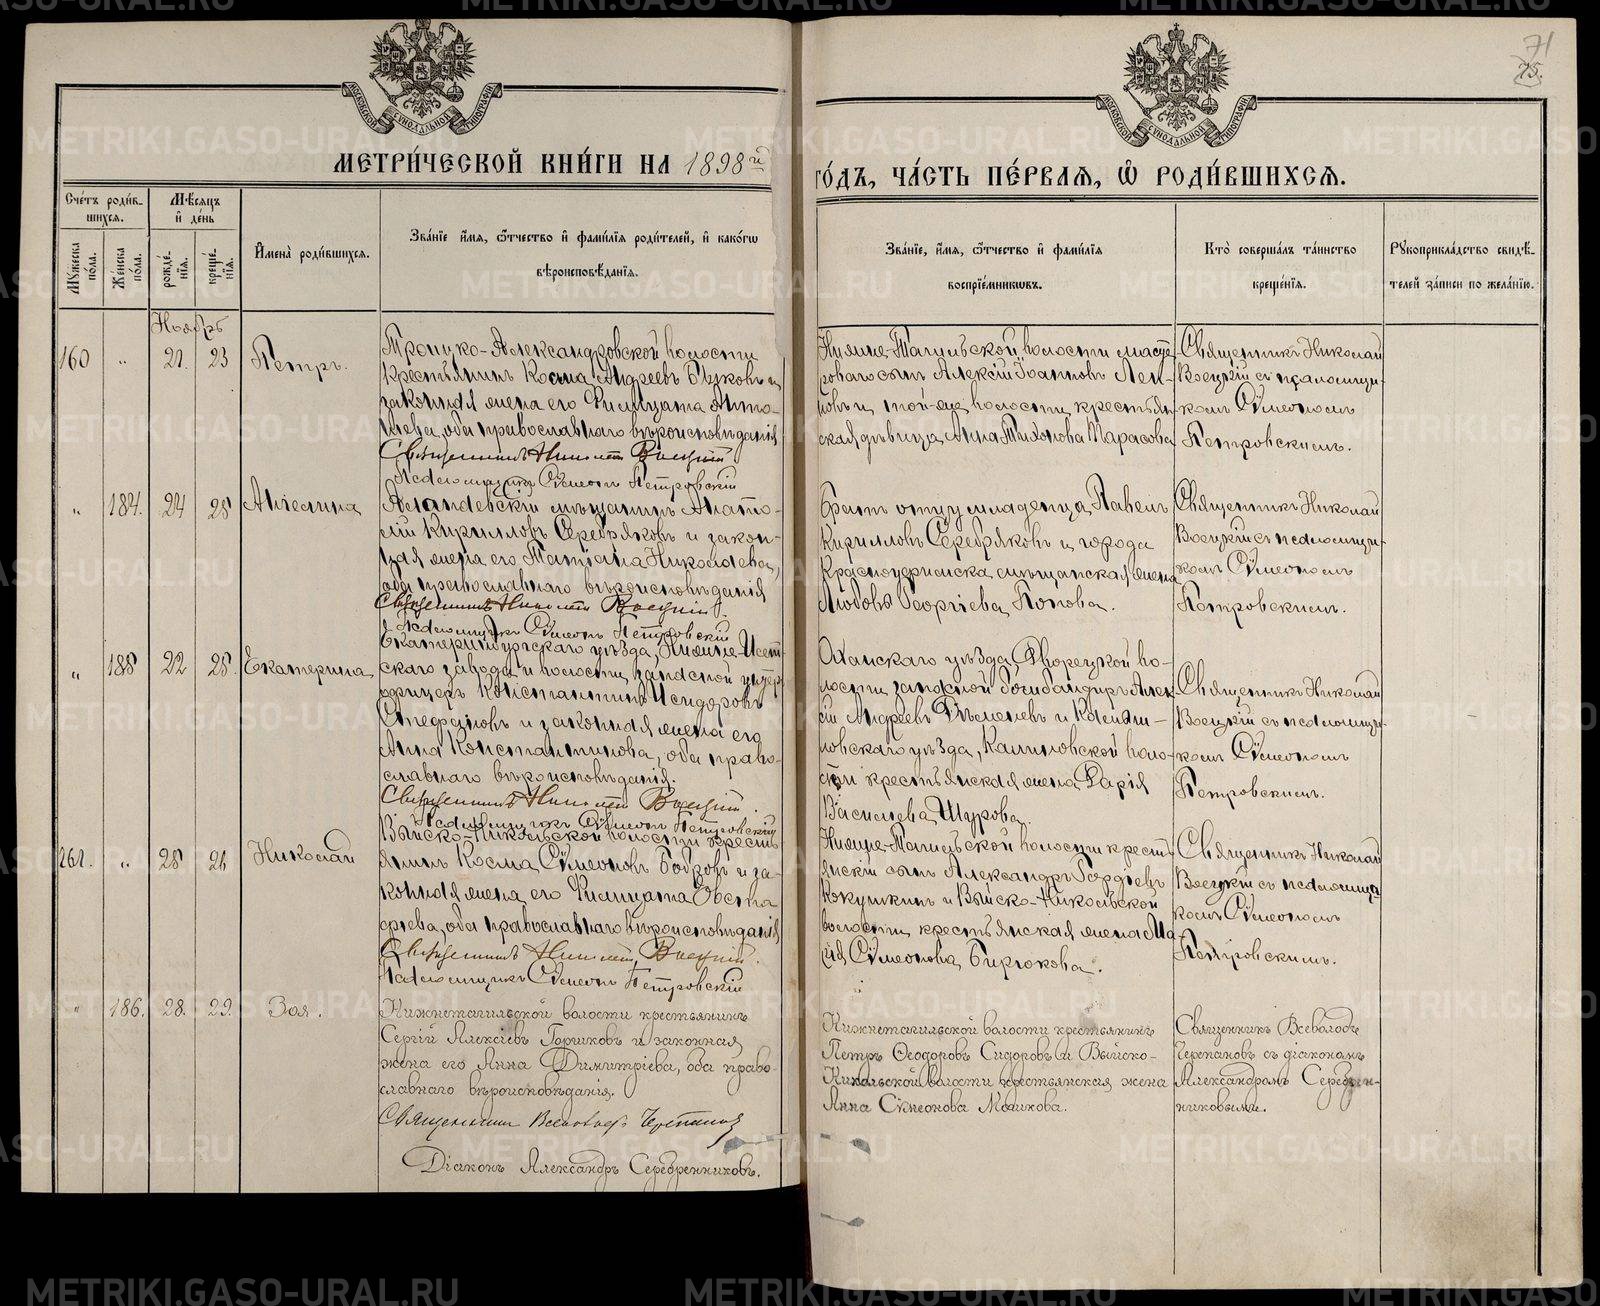 71
75.
МОСКОВСКОЙ СѴНОДАЛЬНОЙ ТИПОГРАФІИ
МОСКОВСКОЙ СѴНОДАЛЬНОЙ ТИПОГРАФІИ
МЕТРИ́ЧЕСКОЙ КНИ́ГИ НА 1898й
ГО́ДЪ, ЧА́СТЬ ПЕ́РВАѦ, Ѡ҆ РОДИ́ВШИХСѦ.
Сче́тъ роди́в-
шихся.
Мѣ́сяцъ
и҆ де́нь
Му́жеска
по́ла.
Же́нска
по́ла.
рожде́-
нїѧ.
креще́-
нїѧ.
И҆мена̀ роди́вшихсѧ.
Зва́нїе и҆́мѧ, ѻ҆́тчество и҆ фами́лїѧ роди́телей, и҆ како́гѡ
вѣроисповѣ́данїѧ.
Зва́нїе, и҆́мѧ, ѻ҆́тчество и҆ фами́лїѧ
воспрїе́мникѡвъ.
Кто̀ соверша́лъ та́инство
креще́нїѧ.
Рꙋкоприкла́дство свидѣ́-
телей за́писи по жела́нїю.
Ноябрь
160 " 21. 23 Петръ.
Троицко-Александровской волости
крестьянинъ Косма Андреевъ Быковъ и
законная жена его Филицата
оба православнаго вѣроисповѣданія
Священникъ Николай Воецкій
Псаломщикъ Сѵмеонъ Петровскій
Нижне-Тагильской волости масте-
роваго сынъ Алексій Іоанновъ
и той-же волости крестьян-
ская дѣвица Анна Тихонова Тарасова
Священникъ Николай
Воецкій съ псаломщи-
комъ Сѵмеономъ
Петровскимъ.
" 184. 24 28 Ангелина
мѣщанинъ Анато-
лій Кирилловъ Серебряковъ и закон-
ная жена его Татіана Николаева,
оба православнаго вѣроисповѣданія
Священникъ Николай Воецкій.
Псаломщикъ Сѵмеонъ Петровскій
Братъ отцу младенца Павелъ
Кирилловъ Серебряковъ и города
Красноуфимска мѣщанская жена
Любовь Георгіева Попова.
Священникъ Николай
Воецкій съ псаломщи-
комъ Сѵмеономъ
Петровскимъ.
" 185 22 28. Екатерина
Екатеринбургскаго уѣзда, Нижне-Исет-
скаго завода и волости запасной унтер
офицеръ Константинъ Исидоровъ
Стефановъ и законная жена его
Анна Константинова, оба право-
славнаго вѣроисповѣданія.
Священникъ Николай Воецкій.
Псаломщикъ Сѵмеонъ Петровскій
Оханскаго уѣзда, Дворецкой во-
лости запасной бомбардиръ Алек
сій Андреевъ и Камыш-
ловскаго уѣзда, Калиновской воло-
сти крестьянская жена Дарія
Василіева Щурова.
Священникъ Николай
Воецкій съ псаломщи-
комъ Сѵмеономъ
Петровскимъ.
161. " 28 Николай
Выйско-Никольской волости кресть-
янинъ Косма Сѵмеоновъ Бобровъ и за-
конная жена его Филицата Евста
фіева, оба православнаго вѣроисповѣданія
Священникъ Николай Воецкій.
Псаломщикъ Сѵмеонъ Петровскій
Нижне-Тагильской волости крест-
янскій сынъ Александръ Гордіевъ
Кокушкинъ и Выйско-Никольской
волости крестьянская жена Ма-
рія Сѵмеонова Бирюкова.
Священникъ Николай
Воецкій съ псаломщи-
комъ Сѵмеономъ
Петровскимъ.
" 186. 28. 29. Зоя.
Нижнетагильской волости крестьянинъ
Сергій Алексіевъ Горшковъ и законная
жена его Анна Димитріева, оба право-
славнаго вѣроисповѣданія.
Священникъ Всеволодъ Черепановъ
Діаконъ Александръ Серебренниковъ.
Нижнетагильской волости крестьянинъ
Петръ Ѳеодоровъ Сидоровъ и Выйско-
Никольской волости крестьянская жена
Анна Сѵмеонова
Священникъ Всеволодъ
Черепановъ съ діакономъ
Александромъ Серебрен-
никовымъ.
METRIKI.GASO-URAL.RU